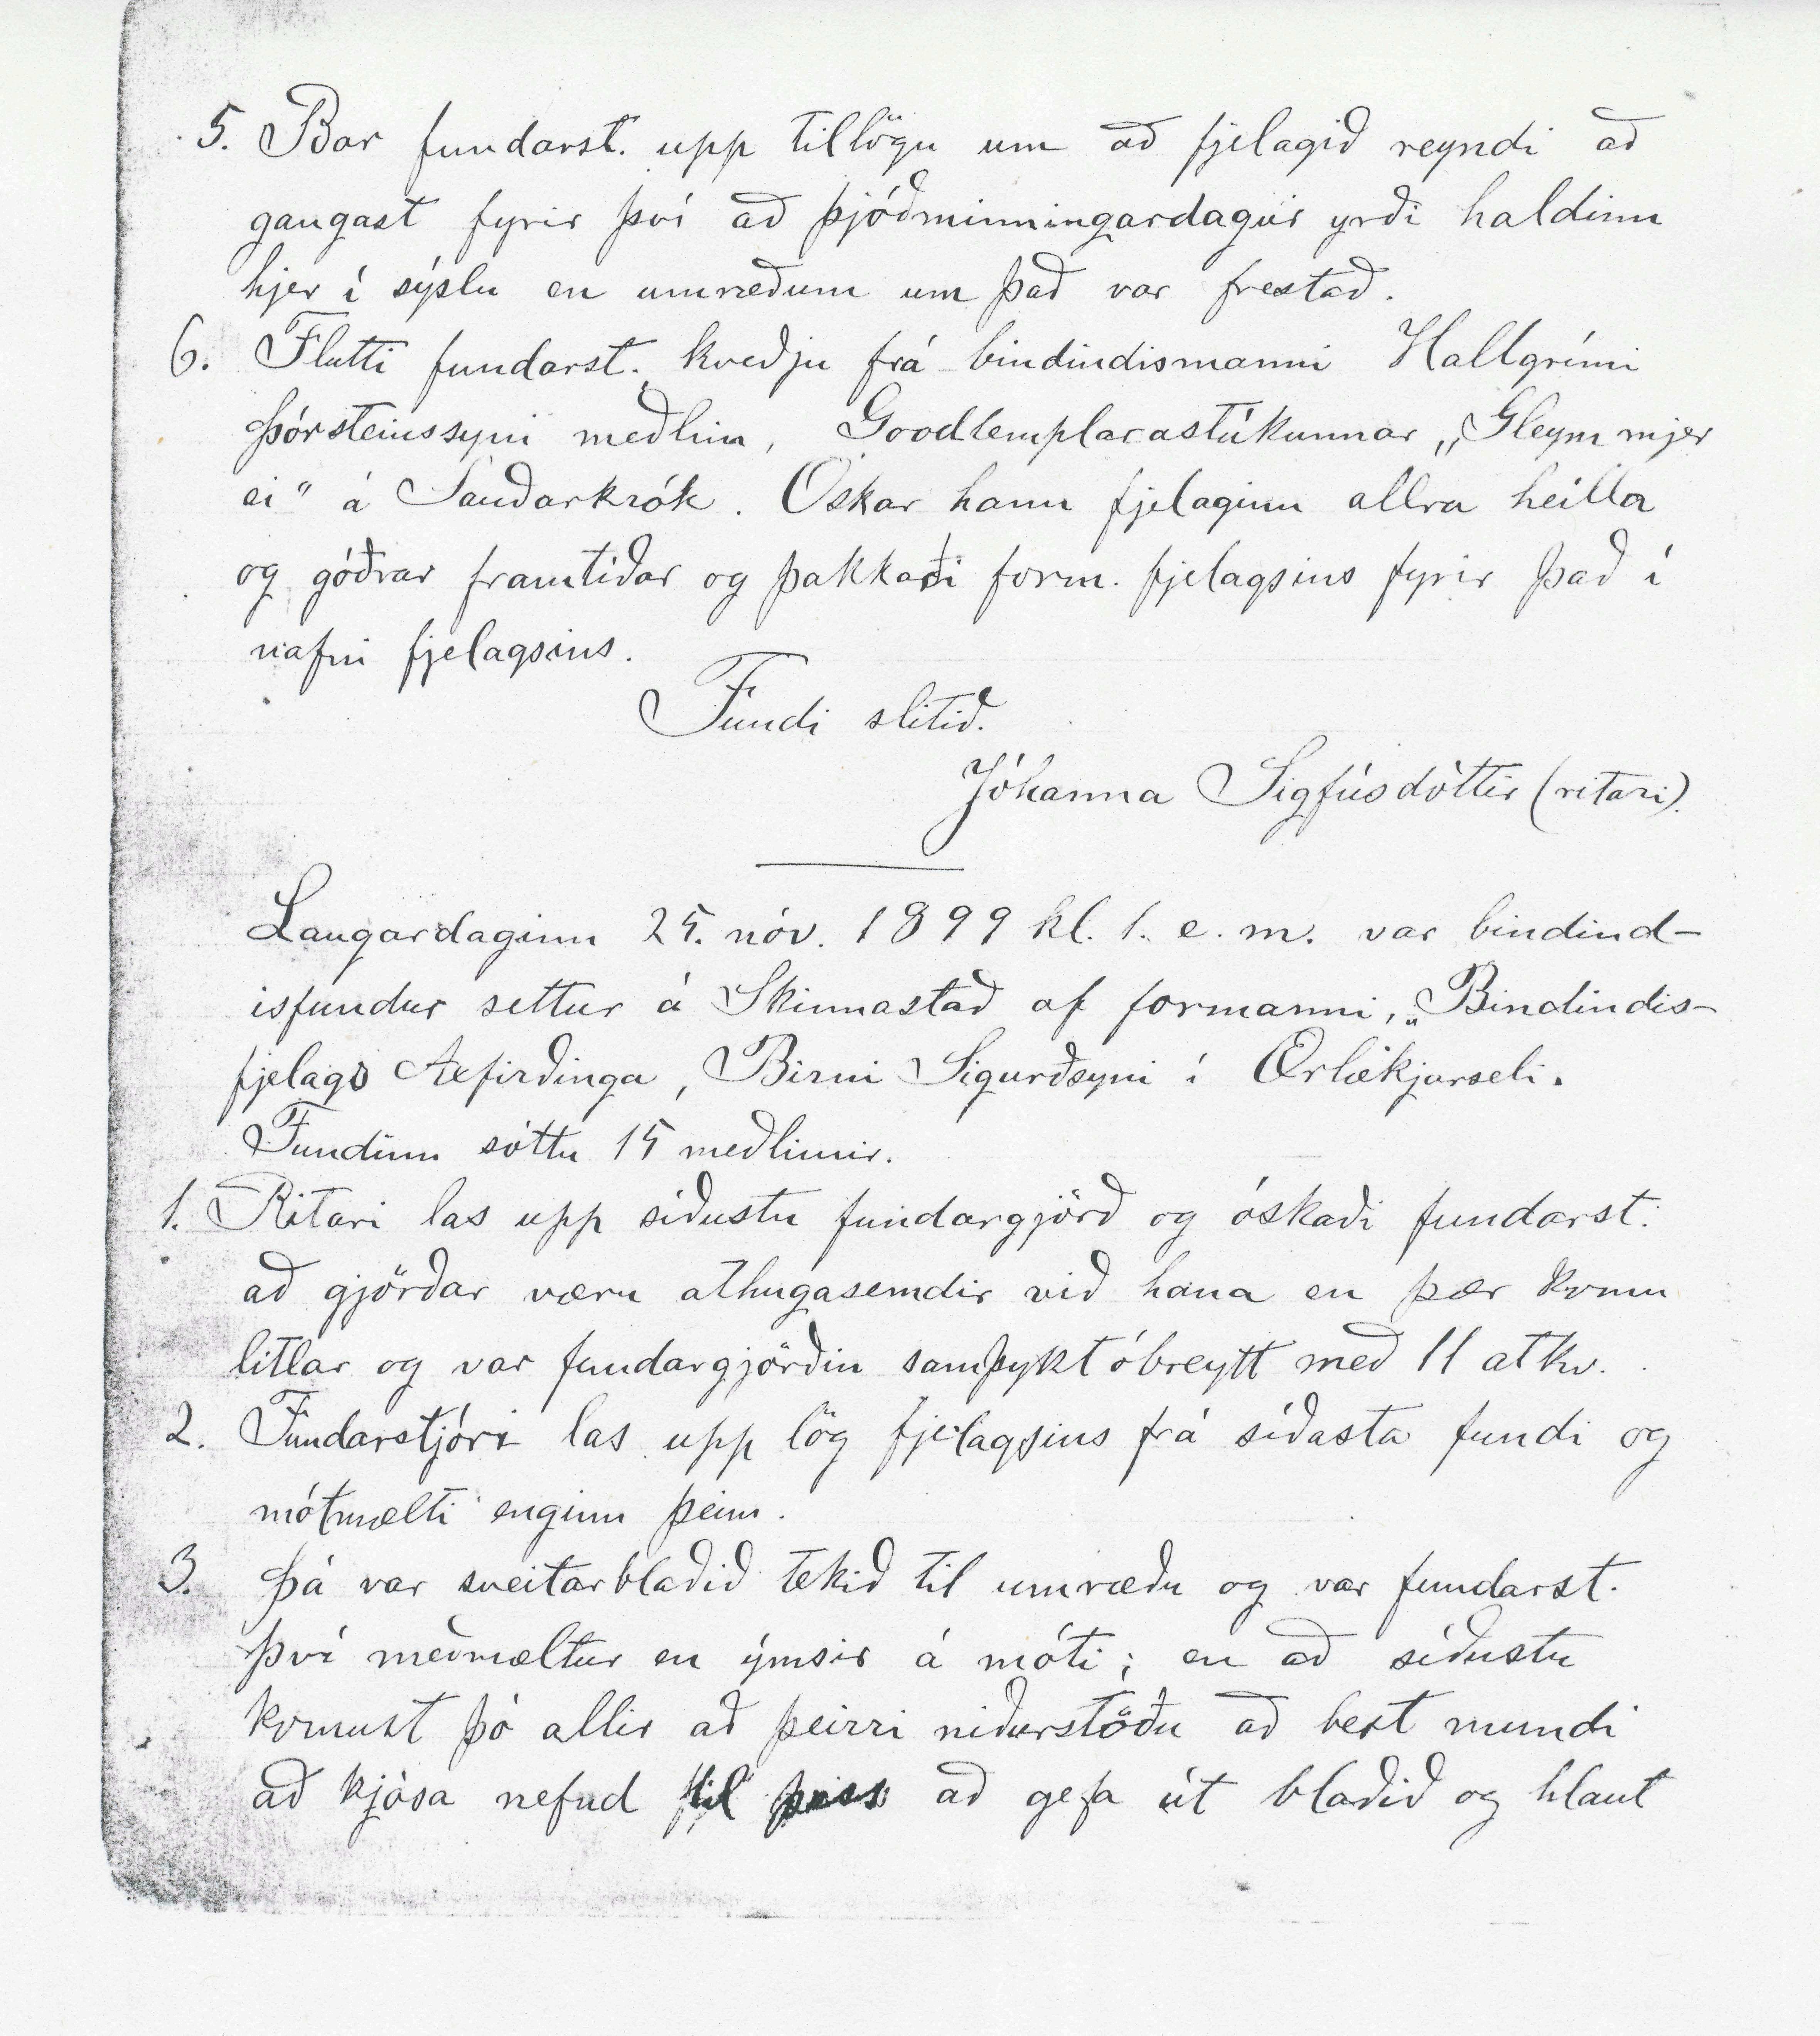 5. Bar fundarst. upp tillögu um að fjelagið reyndi að
gangast fyrir því að þjóðminningardagur yrði haldinn
hjer í sýslu en umræðum um það var frestað.
6. Flutti fundarst. kveðju frá bindindismanni Hallgrími
Þórsteinssyni meðlim, Goodtemplarastúkunnar „Gleym mjer
ei" á Sauðarkrók. Óskar hann fjelaginu allra heilla
og góðrar framtíðar og þakkaði form. fjelagsins fyrir það í
nafni fjelagsins.
Fundi slitið.
Jóhanna Sigfúsdóttir (ritari).
Laugardaginn 25. nóv. 1899 kl. 1. e. m. var bindind-
isfundur settur á Skinnastað af formanni, „Bindindis-
fjelags Axfirðinga, Birni Sigurðsyni í Ærlækjarseli.
Fundinn sóttu 15 meðlimir.
1. Ritari las upp síðustu fundargjörð og óskaði fundarst.
að gjörðar væru athugasemdir við hana en þær komu
litlar og var fundargjörðin samþykt óbreytt með 11 atkv.
2. Fundarstjóri las upp lög fjelagsins frá síðasta fundi og
mótmælti enginn þeim.
3. Þá var sveitarblaðið tekið til umræðu og var fundarst.
því meðmæltur en ýmsir á móti; en að síðustu
komust þó allir að þeirri niðurstöðu að best mundi
að kjósa nefnd til þess að gefa út blaðið og hlaut